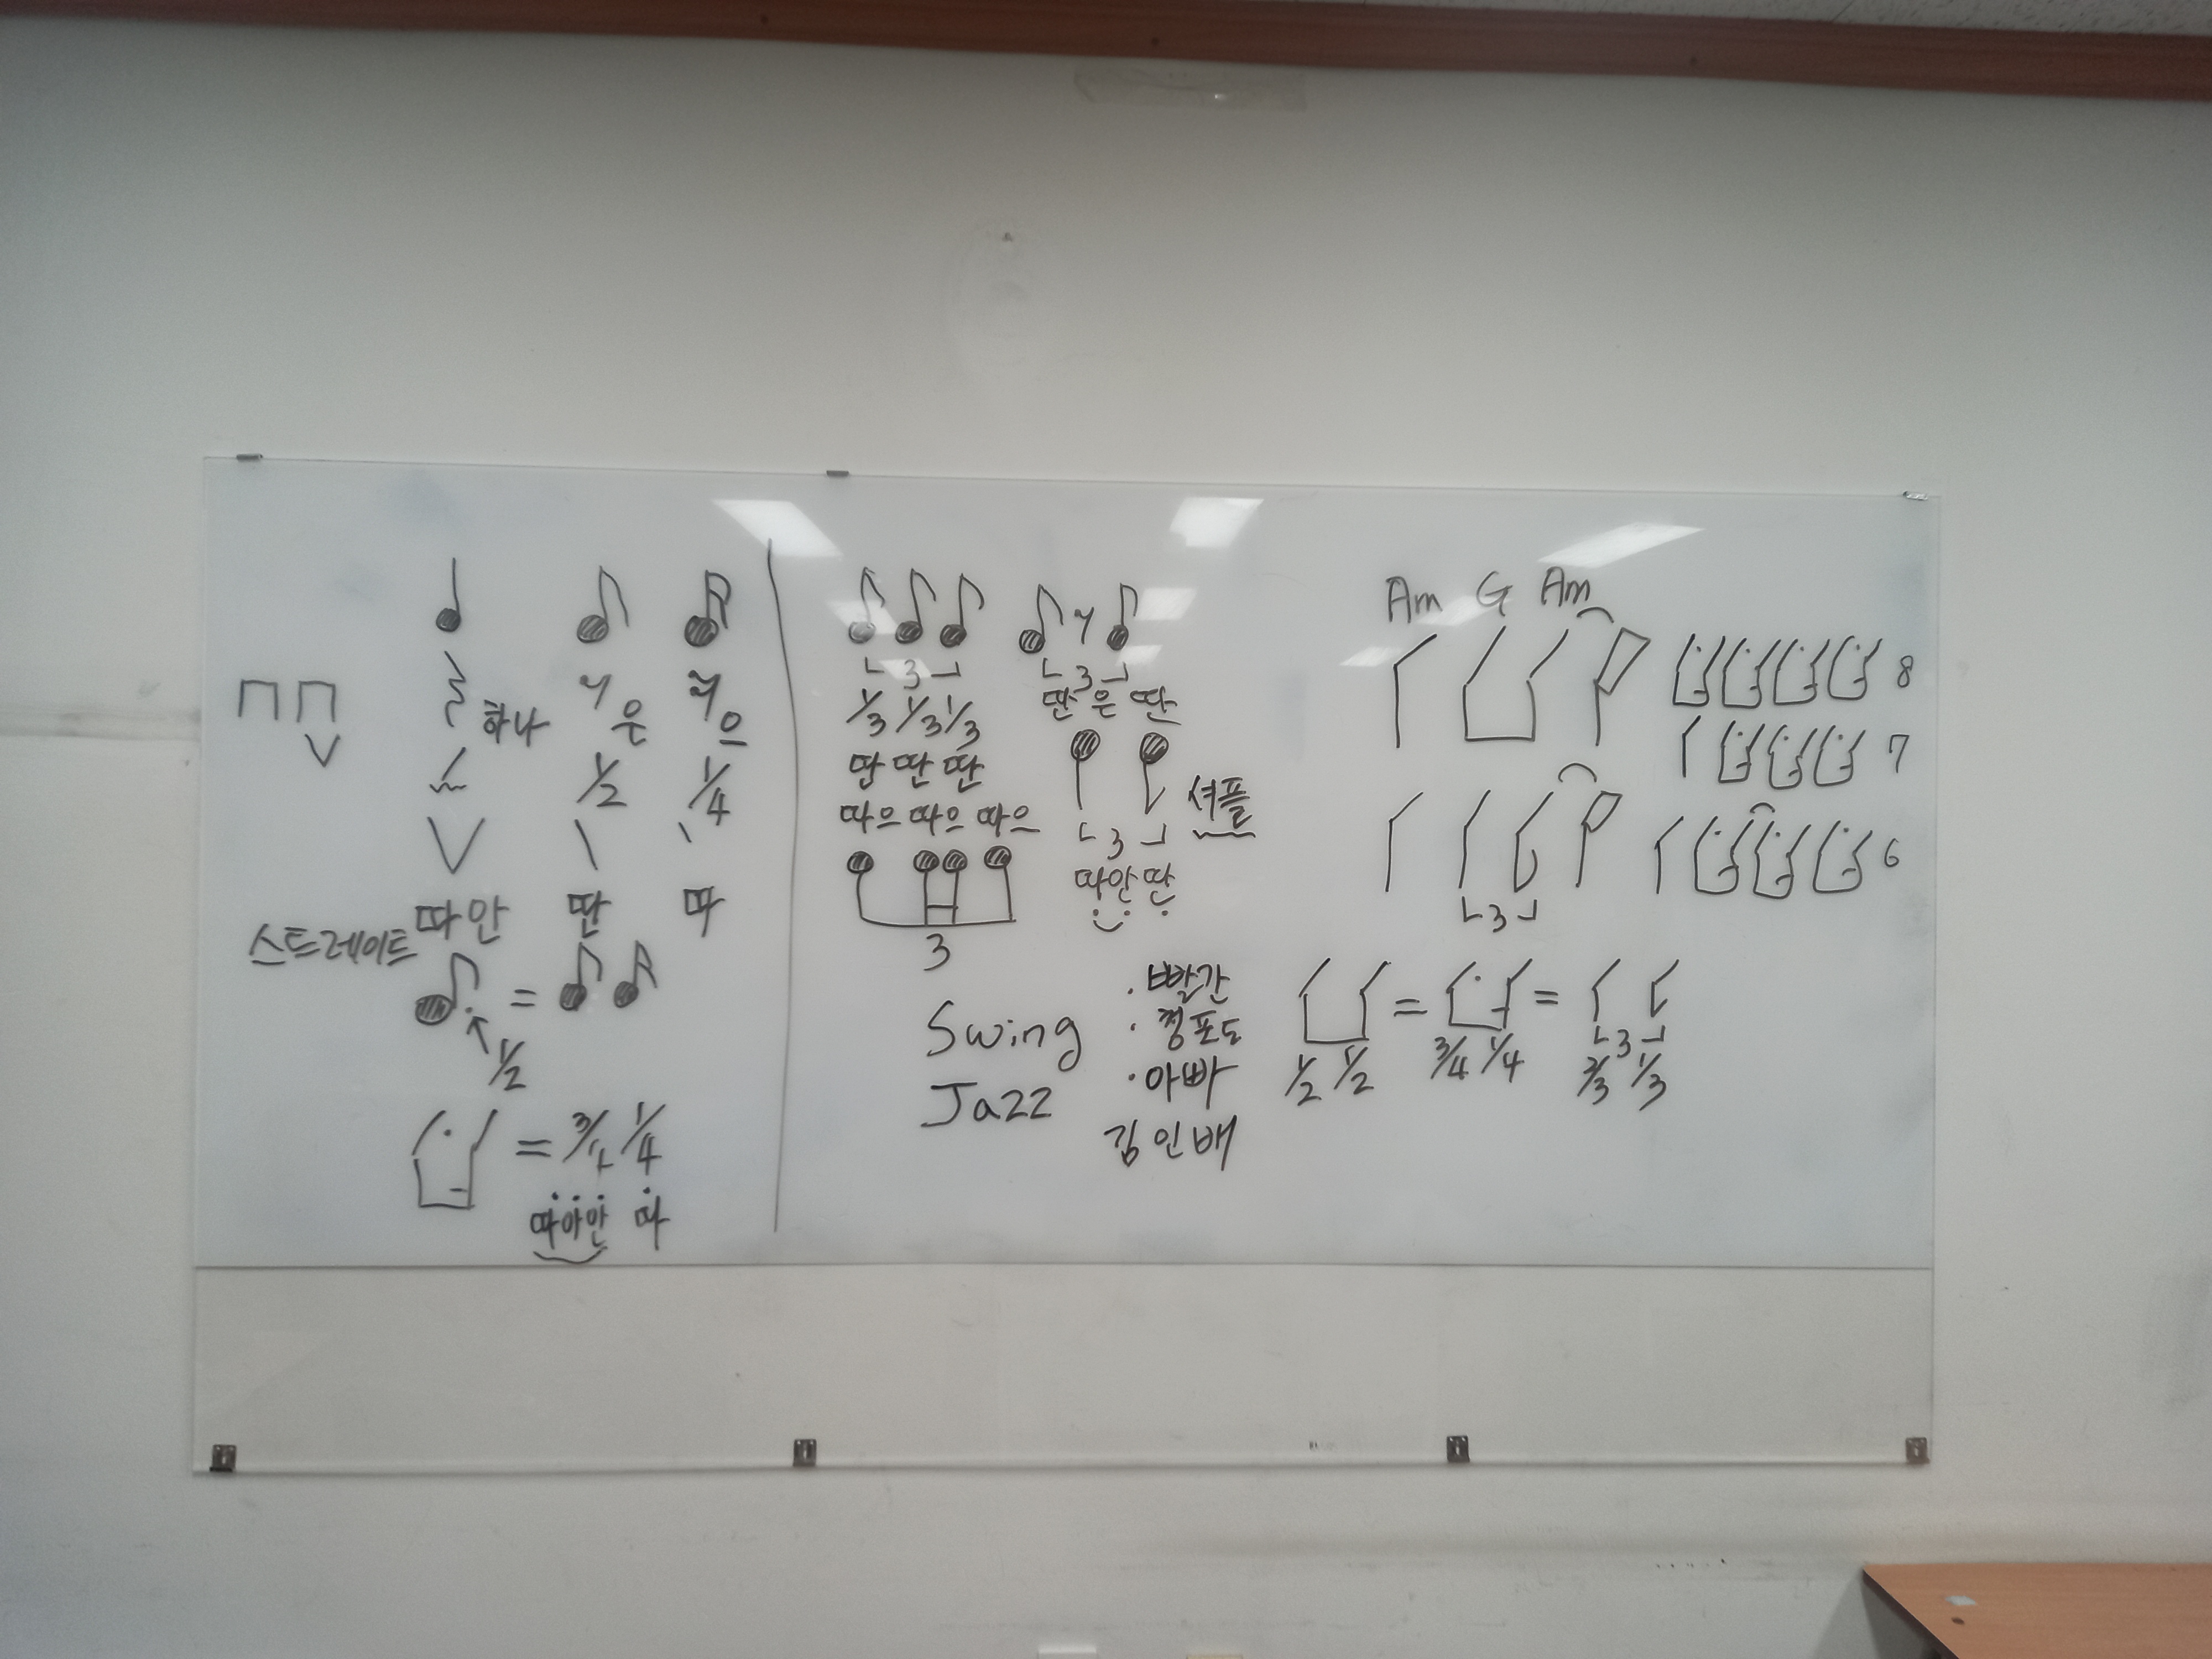 하나 은 으
1/2 1/4
따안 딴 따
스트레이트
= 
1/2
= 3/4 1/4
따아안 따
3 3
1/3 1/3 1/3 딴은딴
딴 딴 딴
따으 따으 따으
셔플
3
따안딴
3
Swing
Jazz
· 빨간
· 청포도
· 아빠
김인배
Am G Am
8
7
6
3
= =
3
1/2 1/2 3/4 1/4 2/3 1/3